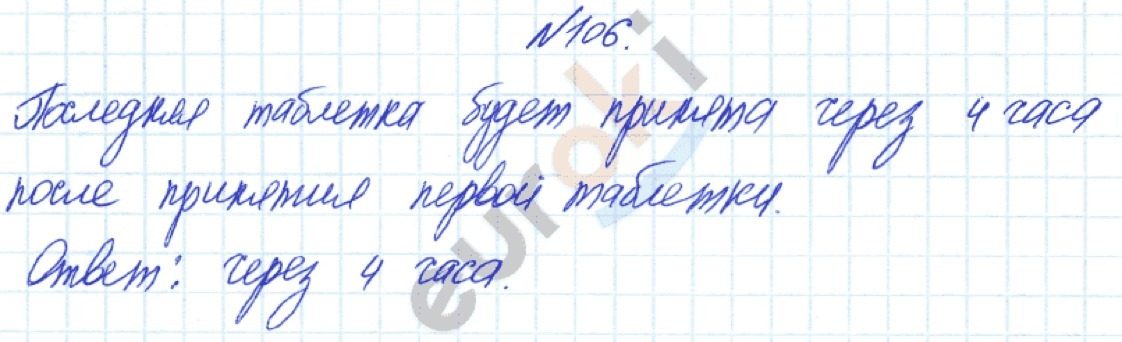 №106.
Последняя таблетка будет принята через 4 часа
после принятия первой таблетки.
Ответ: через 4 часа.
euroki